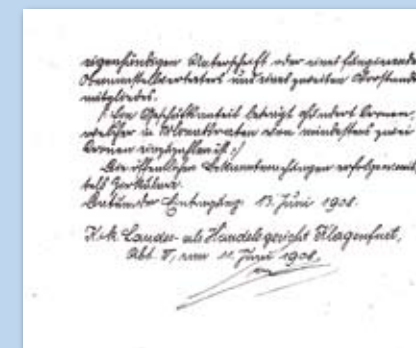 eigenhändigen Unterschrift oder eines fungierenden
Obmannstellvertreters und eines zweiten Vorstands
mitgliedes.
Der Geschäftsanteil beträgt hundert Kronen,
welcher in Monatsraten von mindestens zwei
Kronen einzuzahlen ist.
Die öffentlichen Bekanntmachungen erfolgen mit
tels Zirkulare.
Datum der Eintragung: 13. Juni 1908.
K. k. Landes- als Handelsgericht Klagenfurt,
Abt. V, am 11. Juni 1908.